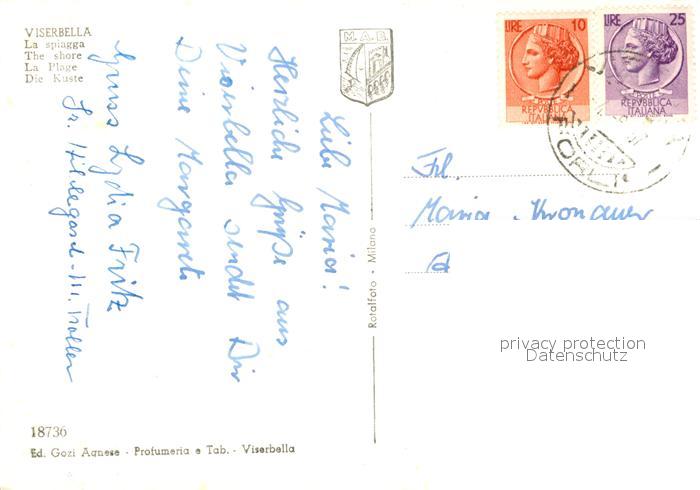 VISERBELLA
La spiagga
The shore
La Plage
Die Kuste
M. A. B.
LIRE 10
POSTE
REPVBBLICA
ITALIANA
LIRE 25
POSTE
REPVBBLICA
ITALIANA
FORLI
Liebe Maria!
Herzliche Grüße aus
Viserbella sendet Dir
Deine Margarete
Gruss Lydia Fritz
Sr. Hildegard - M. Troller
Frl.
Maria Kronauer
Rotalfoto - Milano
privacy protection
Datenschutz
18736
Ed. Gozi Agnese - Profumeria e Tab. - Viserbella